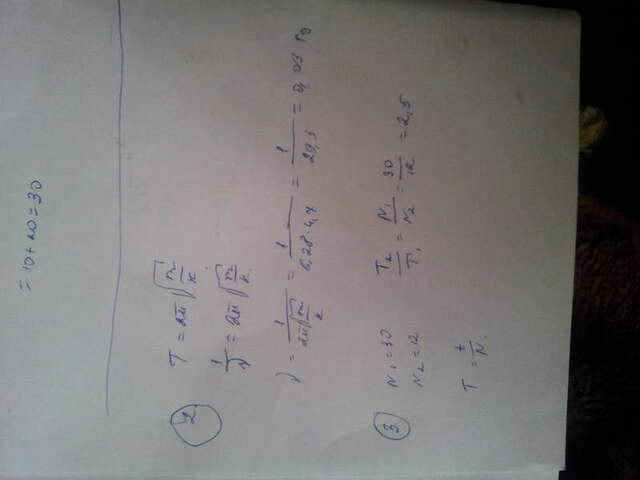 = 10 + 20 = 30
2
T = 2π√(m/k)
1/ν = 2π√(m/k)
ν = 1/(2π√(m/k)) = 1/(6,28·4,7) = 1/29,5 = 0,03 Гц
3
N₁ = 30
N₂ = 12
T₂/T₁ = N₁/N₂ = 30/12 = 2,5
T = t/N